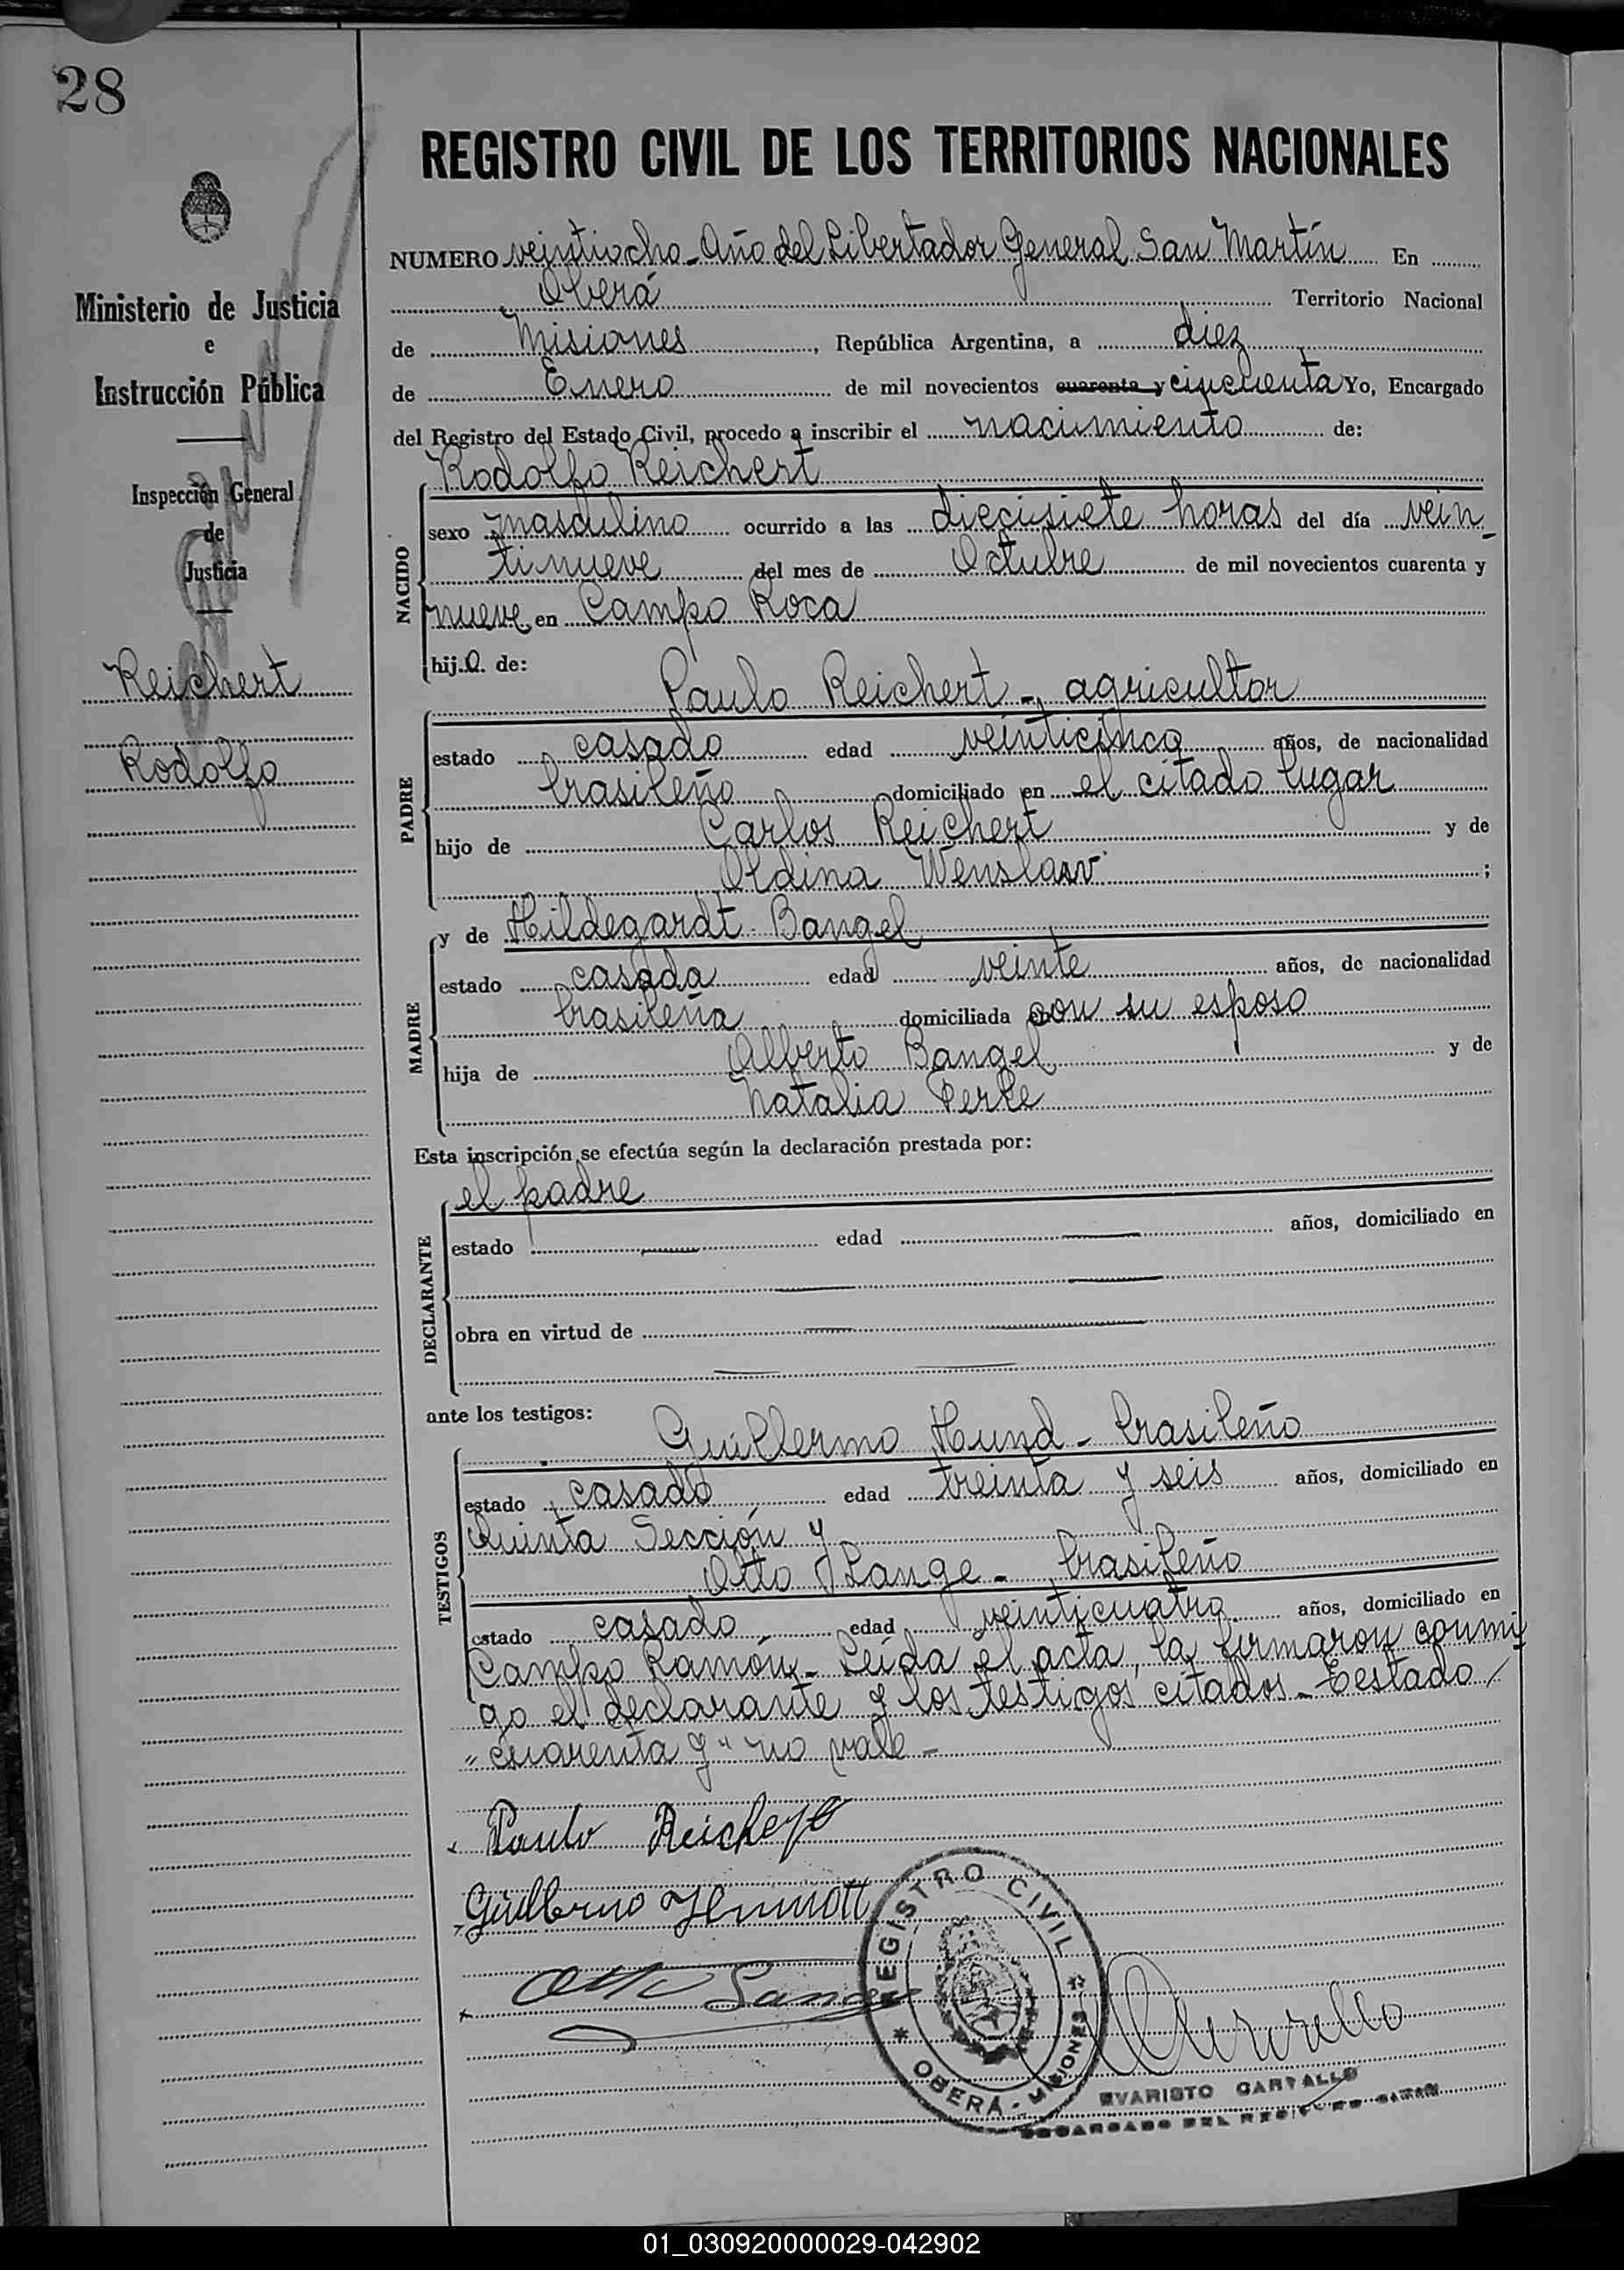 28
REGISTRO CIVIL DE LOS TERRITORIOS NACIONALES
Ministerio de Justicia
e
Instrucción Pública
Inspección General
de
Justicia
Reichert
Rodolfo
NUMERO veintiocho - Año del Libertador General San Martín En
Oberá Territorio Nacional
de Misiones, República Argentina, a diez
de Enero de mil novecientos cuarenta y cincuenta Yo, Encargado
del Registro del Estado Civil, procedo a inscribir el nacimiento de:
NACIDO
Rodolfo Reichert
sexo masculino ocurrido a las diecisiete horas del día vein-
tinueve del mes de Octubre de mil novecientos cuarenta y
nueve en Campo Roca
hijo de:
PADRE
Paulo Reichert -, agricultor
estado casado edad veinticinco años, de nacionalidad
brasileño domiciliado en el citado lugar
hijo de Carlos Reichert y de
Oldina Wenslaw ;
MADRE
y de Hildegardt Bangel
estado casada edad veinte años, de nacionalidad
brasileña domiciliada con su esposo
hija de Alberto Bangel y de
Natalia Perle
Esta inscripción se efectúa según la declaración prestada por:
DECLARANTE
el padre
estado edad años, domiciliado en
obra en virtud de
ante los testigos:
TESTIGOS
Guillermo Hund - brasileño
estado casado edad treinta y seis años, domiciliado en
Quinta Sección y
Otto Lange - brasileño
estado casado edad veinticuatro años, domiciliado en
Campo Ramón - Leída el acta, la firmaron conmi
go el declarante y los testigos citados - Testado /
"cuarenta y" no vale -
Paulo Reichert
Guillermo
Otto Lange
REGISTRO CIVIL
OBERÁ - MISIONES
EVARISTO CARVALLO
ENCARGADO DEL REGISTRO CIVIL
01_030920000029-042902